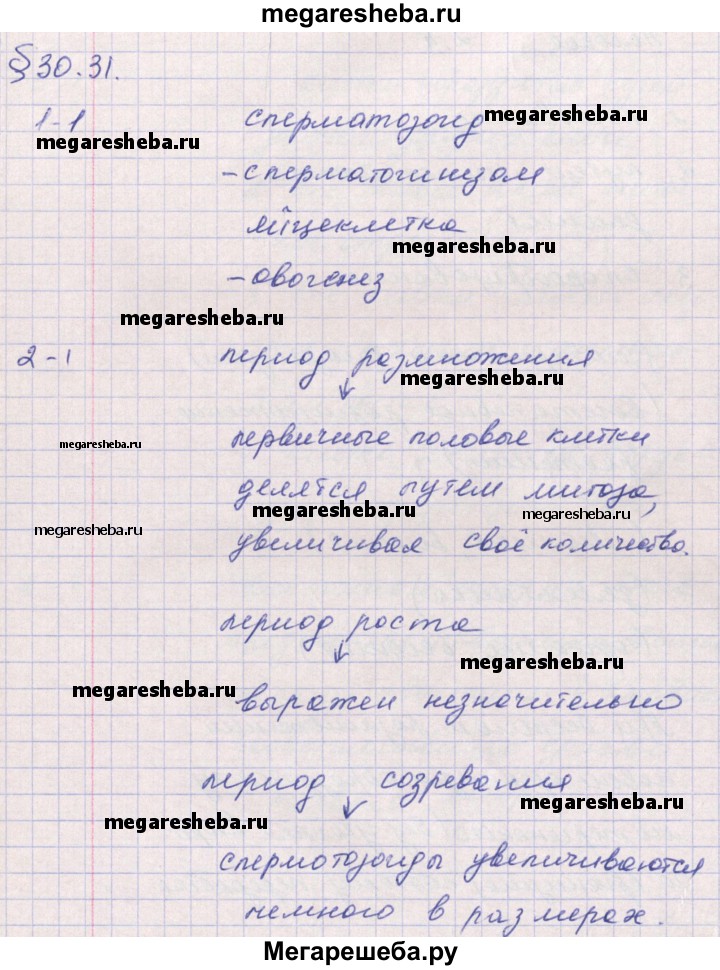 megaresheba.ru
§ 30.31.
1-1 сперматозоид megaresheba.ru
megaresheba.ru
- сперматогинизом
яйцеклетка
megaresheba.ru
- овогенез
megaresheba.ru
2-1 период размножения
megaresheba.ru
первичные половые клетки
megaresheba.ru
делятся путем митоза,
megaresheba.ru megaresheba.ru
megaresheba.ru
увеличивая своё количество.
период роста
megaresheba.ru
megaresheba.ru
выражен незначительно
период созревания
megaresheba.ru
megaresheba.ru
спермотозоиды увеличиваются
немного в размерах.
Мегарешеба.ру